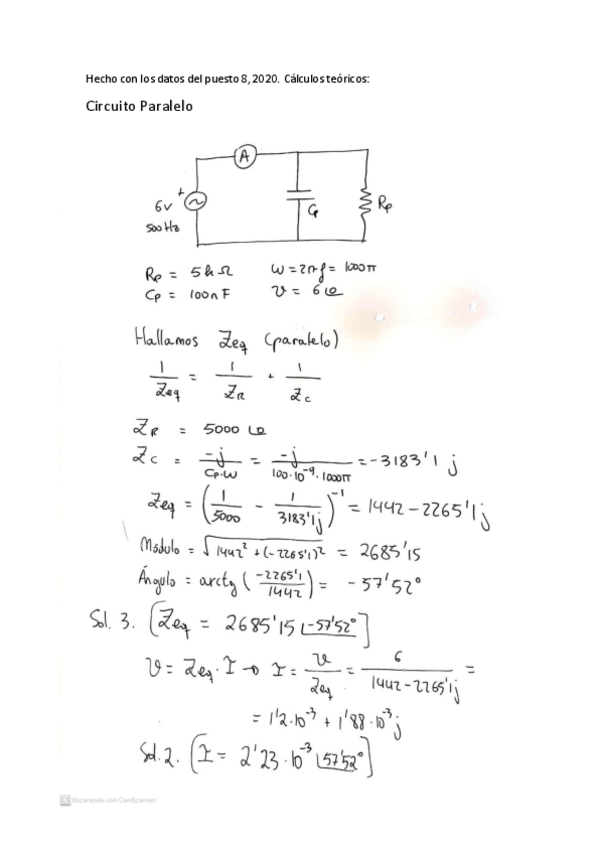 Hecho con los datos del puesto 8, 2020. Cálculos teóricos:
Circuito Paralelo
A
+
6v
500 Hz
Cp
Rp
Rp = 5k Ω   ω = 2πf = 1000π
Cp = 100nF   V = 6∠0
Hallamos Zeq (paralelo)
1/Zeq = 1/ZR + 1/Zc
ZR = 5000 ∠0
Zc = -j/(Cp·ω) = -j/(100·10^-9·1000π) = -3183'1 j
Zeq = (1/5000 - 1/3183'1j)^-1 = 1442 - 2265'1j
Módulo = √(1442² + (-2265'1)²) = 2685'15
Ángulo = arctg (-2265'1/1442) = -57'52°
Sol. 3. [Zeq = 2685'15 ∠-57'52°]
V = Zeq · I → I = V/Zeq = 6/(1442-2265'1j) =
= 1'2·10^-3 + 1'88·10^-3 j
Sol. 2. [I = 2'23·10^-3 ∠57'52°]
CS Escaneado con CamScanner